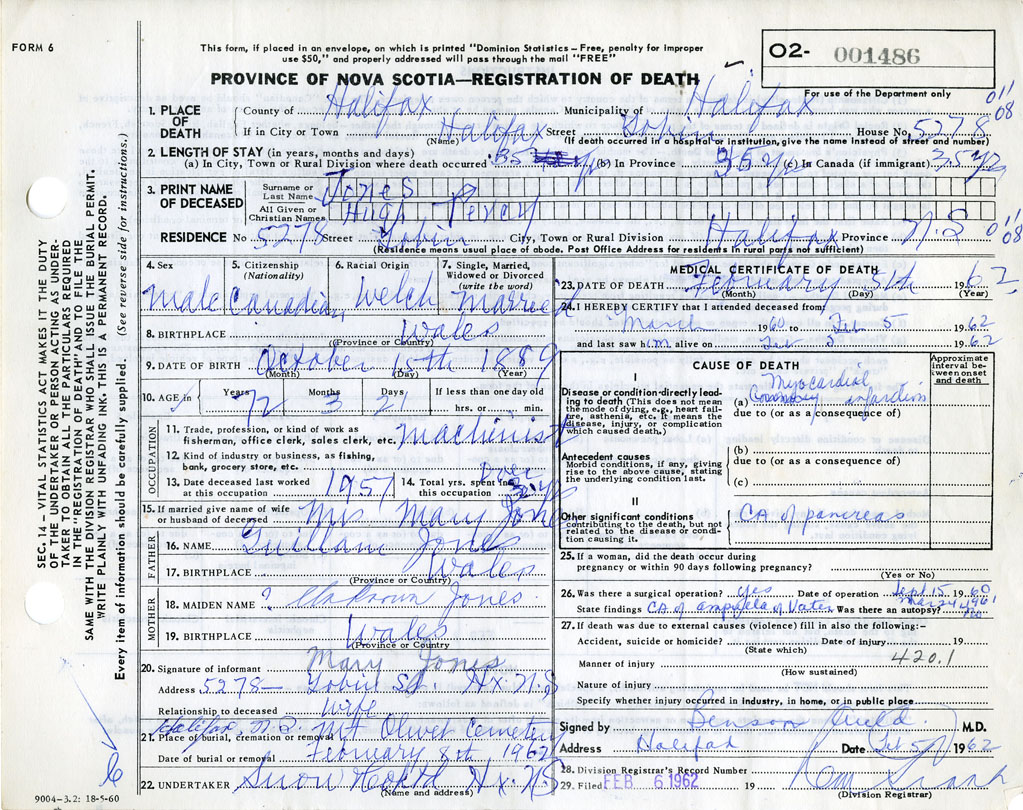 FORM 6
This form, if placed in an envelope, on which is printed "Dominion Statistics – Free, penalty for improper
use $50," and properly addressed will pass through the mail "FREE"
PROVINCE OF NOVA SCOTIA—REGISTRATION OF DEATH
O2- 001486
For use of the Department only
SEC. 14 – VITAL STATISTICS ACT MAKES IT THE DUTY
OF THE UNDERTAKER OR PERSON ACTING AS UNDER-
TAKER TO OBTAIN ALL THE PARTICULARS REQUIRED
IN THE "REGISTRATION OF DEATH" AND TO FILE THE
SAME WITH THE DIVISION REGISTRAR WHO SHALL ISSUE THE BURIAL PERMIT.
WRITE PLAINLY WITH UNFADING INK. THIS IS A PERMANENT RECORD.
Every item of information should be carefully supplied. (See reverse side for instructions.)
1. PLACE OF DEATH
County of Halifax Municipality of Halifax 011 08
If in City or Town Halifax Street Tobin House No. 5278
(Name) (If death occurred in a hospital or institution, give the name instead of street and number)
2. LENGTH OF STAY (in years, months and days)
(a) In City, Town or Rural Division where death occurred 35 yr (b) In Province 35 yr (c) In Canada (if immigrant) 35 yr
3. PRINT NAME OF DECEASED
Surname or Last Name Jones
All Given or Christian Names Hugh Percy
RESIDENCE No 5278 Street Tobin City, Town or Rural Division Halifax Province N.S 011 08
(Residence means usual place of abode. Post Office Address for residents in rural parts not sufficient)
4. Sex 5. Citizenship (Nationality) 6. Racial Origin 7. Single, Married, Widowed or Divorced (write the word)
Male Canadian Welch Married
8. BIRTHPLACE Wales
(Province or Country)
9. DATE OF BIRTH October 15th 1889
(Month) (Day) (Year)
10. AGE in Years Months Days If less than one day old
72 3 21 hrs. or min.
OCCUPATION
11. Trade, profession, or kind of work as
fisherman, office clerk, sales clerk, etc. Machinist
12. Kind of industry or business, as fishing,
bank, grocery store, etc.
13. Date deceased last worked at this occupation 1957
14. Total yrs. spent in this occupation Over
15. If married give name of wife or husband of deceased Mrs Mary Jones
FATHER
16. NAME Guillam Jones
17. BIRTHPLACE Wales
(Province or Country)
MOTHER
18. MAIDEN NAME ? Unknown Jones
19. BIRTHPLACE Wales
(Province or Country)
20. Signature of informant Mary Jones
Address 5278– Tobin St. Hx. N.S
Relationship to deceased wife
Halifax, N.S. Mt Olivet Cemetery
21. Place of burial, cremation or removal
Date of burial or removal February 8th 1962
22. UNDERTAKER Snow Hx. NS
(Name and address)
6
9004-3.2: 18-5-60
MEDICAL CERTIFICATE OF DEATH
23. DATE OF DEATH February 5th 1962
(Month) (Day) (Year)
24. I HEREBY CERTIFY that I attended deceased from
March 1960 to Feb 5 1962
and last saw him alive on Feb 5 1962
CAUSE OF DEATH
Approximate interval between onset and death
I
Disease or condition directly leading to death (This does not mean the mode of dying, e.g., heart failure, asthenia, etc. It means the disease, injury, or complication which caused death.)
Myocardial
(a) infarction
due to (or as a consequence of)
Antecedent causes
Morbid conditions, if any, giving rise to the above cause, stating the underlying condition last.
(b)
due to (or as a consequence of)
(c)
II
Other significant conditions
contributing to the death, but not related to the disease or condition causing it.
CA of pancreas
25. If a woman, did the death occur during
pregnancy or within 90 days following pregnancy?
(Yes or No)
26. Was there a surgical operation? yes Date of operation Sept 15 1960
State findings CA of ampulla of Vater Was there an autopsy? no
27. If death was due to external causes (violence) fill in also the following:–
Accident, suicide or homicide? Date of injury 19
(State which)
Manner of injury 420.1
(How sustained)
Nature of injury
Specify whether injury occurred in industry, in home, or in public place
Signed by Benson Auld M.D.
Address Halifax Date Feb 5 1962
28. Division Registrar's Record Number
29. Filed FEB 6 1962 19
(Division Registrar)